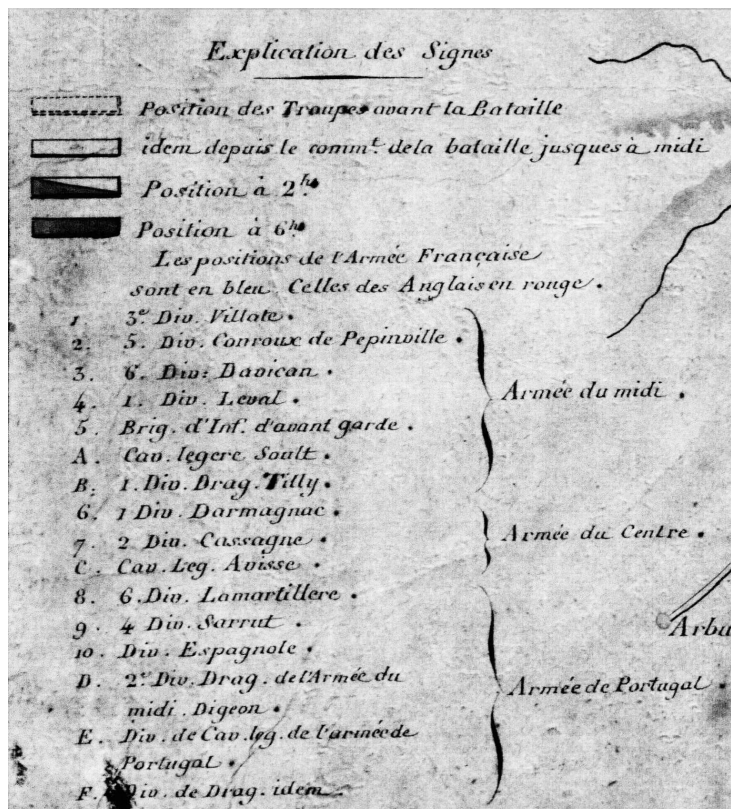 Explication des Signes
Position des Troupes avant la Bataille
idem depuis le comm.t de la bataille jusques à midi
Position à 2.hs
Position à 6.hs
Les positions de l'Armée Française
sont en bleu. Celles des Anglais en rouge.
1 3.e Div. Villate.
2. 5. Div. Conroux de Pepinville.
3. 6. Div: Davican.
4. 1. Div. Leval.
5. Brig. d'Inf. d'avant garde.
Armée du midi.
A. Cav. legere Soult.
B. 1. Div. Drag. Tilly.
6. 1 Div. Darmagnac.
7. 2 Div. Cassagne.
Armée du Centre.
C. Cav. Leg. Avisse.
8. 6. Div. Lamartillere.
9. 4 Div. Sarrut.
Arbu
10. Div. Espagnole.
D. 2.e Div. Drag. de l'Armée du
midi. Digeon.
Armée de Portugal.
E. Div. de Cav. leg. de l'armée de
Portugal.
F. Div. de Drag. idem.